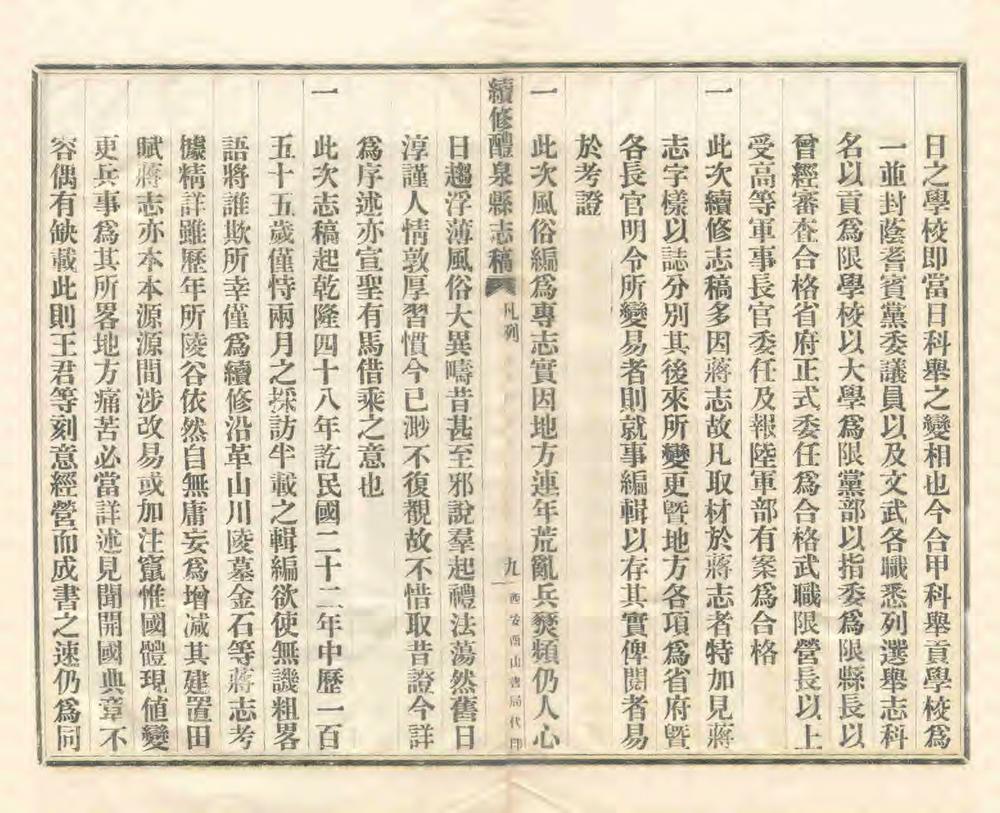 日之學校即當日科舉之變相也今合甲科舉貢學校爲
一並封蔭耆賓黨委議員以及文武各職悉列選舉志科
名以貢爲限學校以大學爲限黨部以指委爲限縣長以
曾經審查合格省府正式委任爲合格武職限營長以上
受高等軍事長官委任及報陸軍部有案爲合格
一 此次續修志稿多因蔣志故凡取材於蔣志者特加見蔣
志字樣以誌分別其後來所變更暨地方各項爲省府暨
各長官明令所變易者則就事編輯以存其實俾閱者易
於考證
一 此次風俗編爲專志實因地方連年荒亂兵燹頻仍人心
續修醴泉縣志稿 凡列 九 西安酉山書局代印
日趨浮薄風俗大異疇昔甚至邪說羣起禮法蕩然舊日
淳謹人情敦厚習慣今已渺不復覩故不惜取昔證今詳
爲序述亦宣聖有馬借乘之意也
一 此次志稿起乾隆四十八年訖民國二十二年中歷一百
五十五歲僅恃兩月之採訪半載之輯編欲使無譏粗畧
語將誰欺所幸僅爲續修沿革山川陵墓金石等蔣志考
據精詳雖歷年所陵谷依然自無庸妄爲增减其建置田
賦蔣志亦本本源源間涉改易或加注竄惟國體現値變
更兵事爲其所畧地方痛苦必當詳述見聞開國典章不
容偶有缺載此則王君等刻意經營而成書之速仍爲同